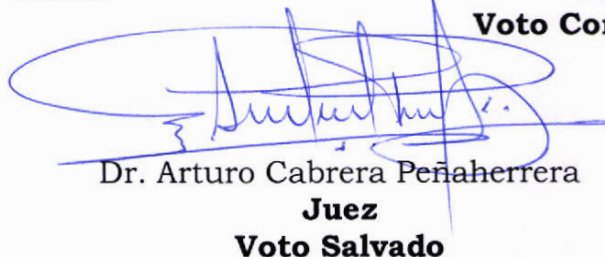 Voto
Dr. Arturo Cabrera Peñaherrera
Juez
Voto Salvado